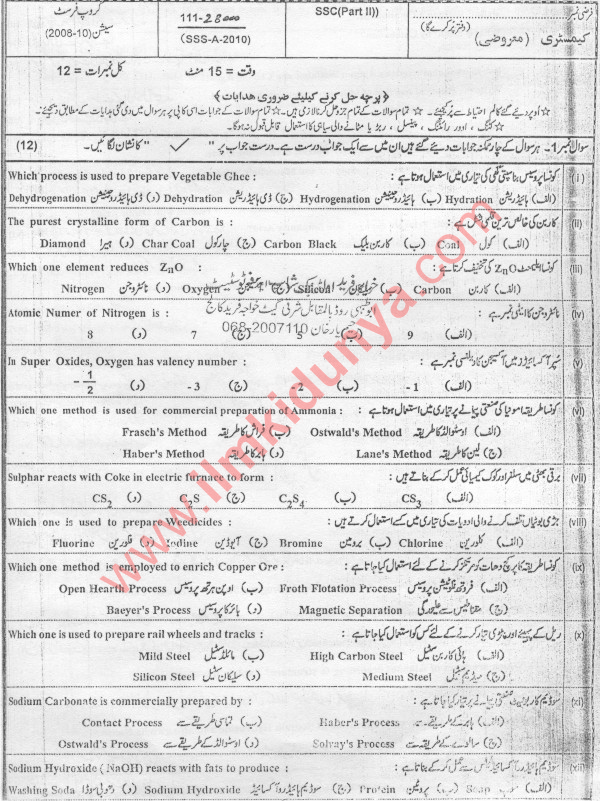 فرضی نمبر
(دفتر پُر کرے گا)
SSC(Part II))
111-28000
گروپ فرسٹ
کیمسٹری (معروضی)
(SSS-A-2010)
سیشن (2008-10)
وقت = 15 منٹ
کل نمبرات = 12
پرچہ حل کرنے کیلئے ضروری ھدایات
سوال نمبر 1۔ ہر سوال کے چار ممکنہ جوابات دیئے گئے ہیں ان میں سے ایک جواب درست ہے۔ درست جواب پر " ✓ " کا نشان لگائیں۔ (12)
(i) Which process is used to prepare Vegetable Ghee: کونسا پروسیس بناسپتی گھی کی تیاری میں استعمال ہوتا ہے:
(الف) Hydration ہائیڈریشن (ب) Hydrogenation ہائیڈروجنیشن (ج) Dehydration ڈی ہائیڈریشن (د) Dehydrogenation ڈی ہائیڈروجنیشن
(ii) The purest crystalline form of Carbon is : کاربن کی خالص ترین قلمی شکل ہے:
(الف) Coal کول (ب) Carbon Black کاربن بلیک (ج) Char Coal چارکول (د) Diamond ہیرا
(iii) Which one element reduces ZnO : کونسا ایلیمنٹ ZnO کی تخفیف کرتا ہے:
(الف) Carbon کاربن (ب) Silicon (ج) Oxygen (د) Nitrogen نائٹروجن
(iv) Atomic Numer of Nitrogen is : نائٹروجن کا اٹامک نمبر ہے:
(الف) 9 (ب) 5 (ج) 7 (د) 8
ابوظہبی روڈ بالمقابل شرقی گیٹ خواجہ فرید کالج
رحیم یار خان 068-2007110
(v) In Super Oxides, Oxygen has valency number : سپر آکسائیڈز میں آکسیجن کا ویلنسی نمبر ہے:
(الف) -1 (ب) -2 (ج) -3 (د) -1/2
(vi) Which one method is used for commercial preparation of Ammonia : کونسا طریقہ امونیا کی صنعتی پیمانے پر تیاری میں استعمال ہوتا ہے:
(الف) Ostwald's Method اوسٹوالڈ کا طریقہ (ب) Frasch's Method فراش کا طریقہ
(ج) Lane's Method لین کا طریقہ (د) Haber's Method ہابر کا طریقہ
(vii) Sulphar reacts with Coke in electric furnace to form : برقی بھٹی میں سلفر اور کوک کیمیائی عمل کر کے بناتے ہیں:
(الف) CS₃ (ب) C₂S₄ (ج) C₂S (د) CS₂
(viii) Which one is used to prepare Weedicides : جڑی بوٹیاں تلف کرنے والی ادویات کی تیاری میں کسے استعمال کرتے ہیں:
(الف) Chlorine کلورین (ب) Bromine برومین (ج) Iodine آیوڈین (د) Fluorine فلورین
(ix) Which one method is employed to enrich Copper Ore : کونسا طریقہ کاپر کی کچ دھات کو مرتکز کرنے کے لئے استعمال کیا جاتا ہے:
(الف) Froth Flotation Process فروتھ فلوٹیشن پروسیس (ب) Open Hearth Process اوپن ہرتھ پروسیس
(ج) Magnetic Separation مقناطیس سے علیحدگی (د) Baeyer's Process بائر کا پروسیس
(x) Which one is used to prepare rail wheels and tracks : ریل کے پہیئے اور پٹڑی تیار کرنے کے لئے کس کو استعمال کیا جاتا ہے:
(الف) High Carbon Steel ہائی کاربن سٹیل (ب) Mild Steel مائلڈ سٹیل
(ج) Medium Steel میڈیم سٹیل (د) Silicon Steel سیلیکان سٹیل
(xi) Sodium Carbonate is commercially prepared by : سوڈیم کاربونیٹ صنعتی پیمانے پر تیار کیا جاتا ہے:
(الف) Haber's Process ہابر کے طریقے سے (ب) Contact Process تماسی طریقے سے
(ج) Solvay's Process سالوے کے طریقہ سے (د) Ostwald's Process اوسٹوالڈ کے طریقے سے
(xii) Sodium Hydroxide (NaOH) reacts with fats to produce : سوڈیم ہائیڈروآکسائیڈ فیٹس سے عمل کر کے بناتا ہے:
(الف) Soap سوپ (ب) Protein پروٹین (ج) Sodium Hydroxide سوڈیم ہائیڈروآکسائیڈ (د) Washing Soda دھوبی سوڈا
www.ilmkidunya.com